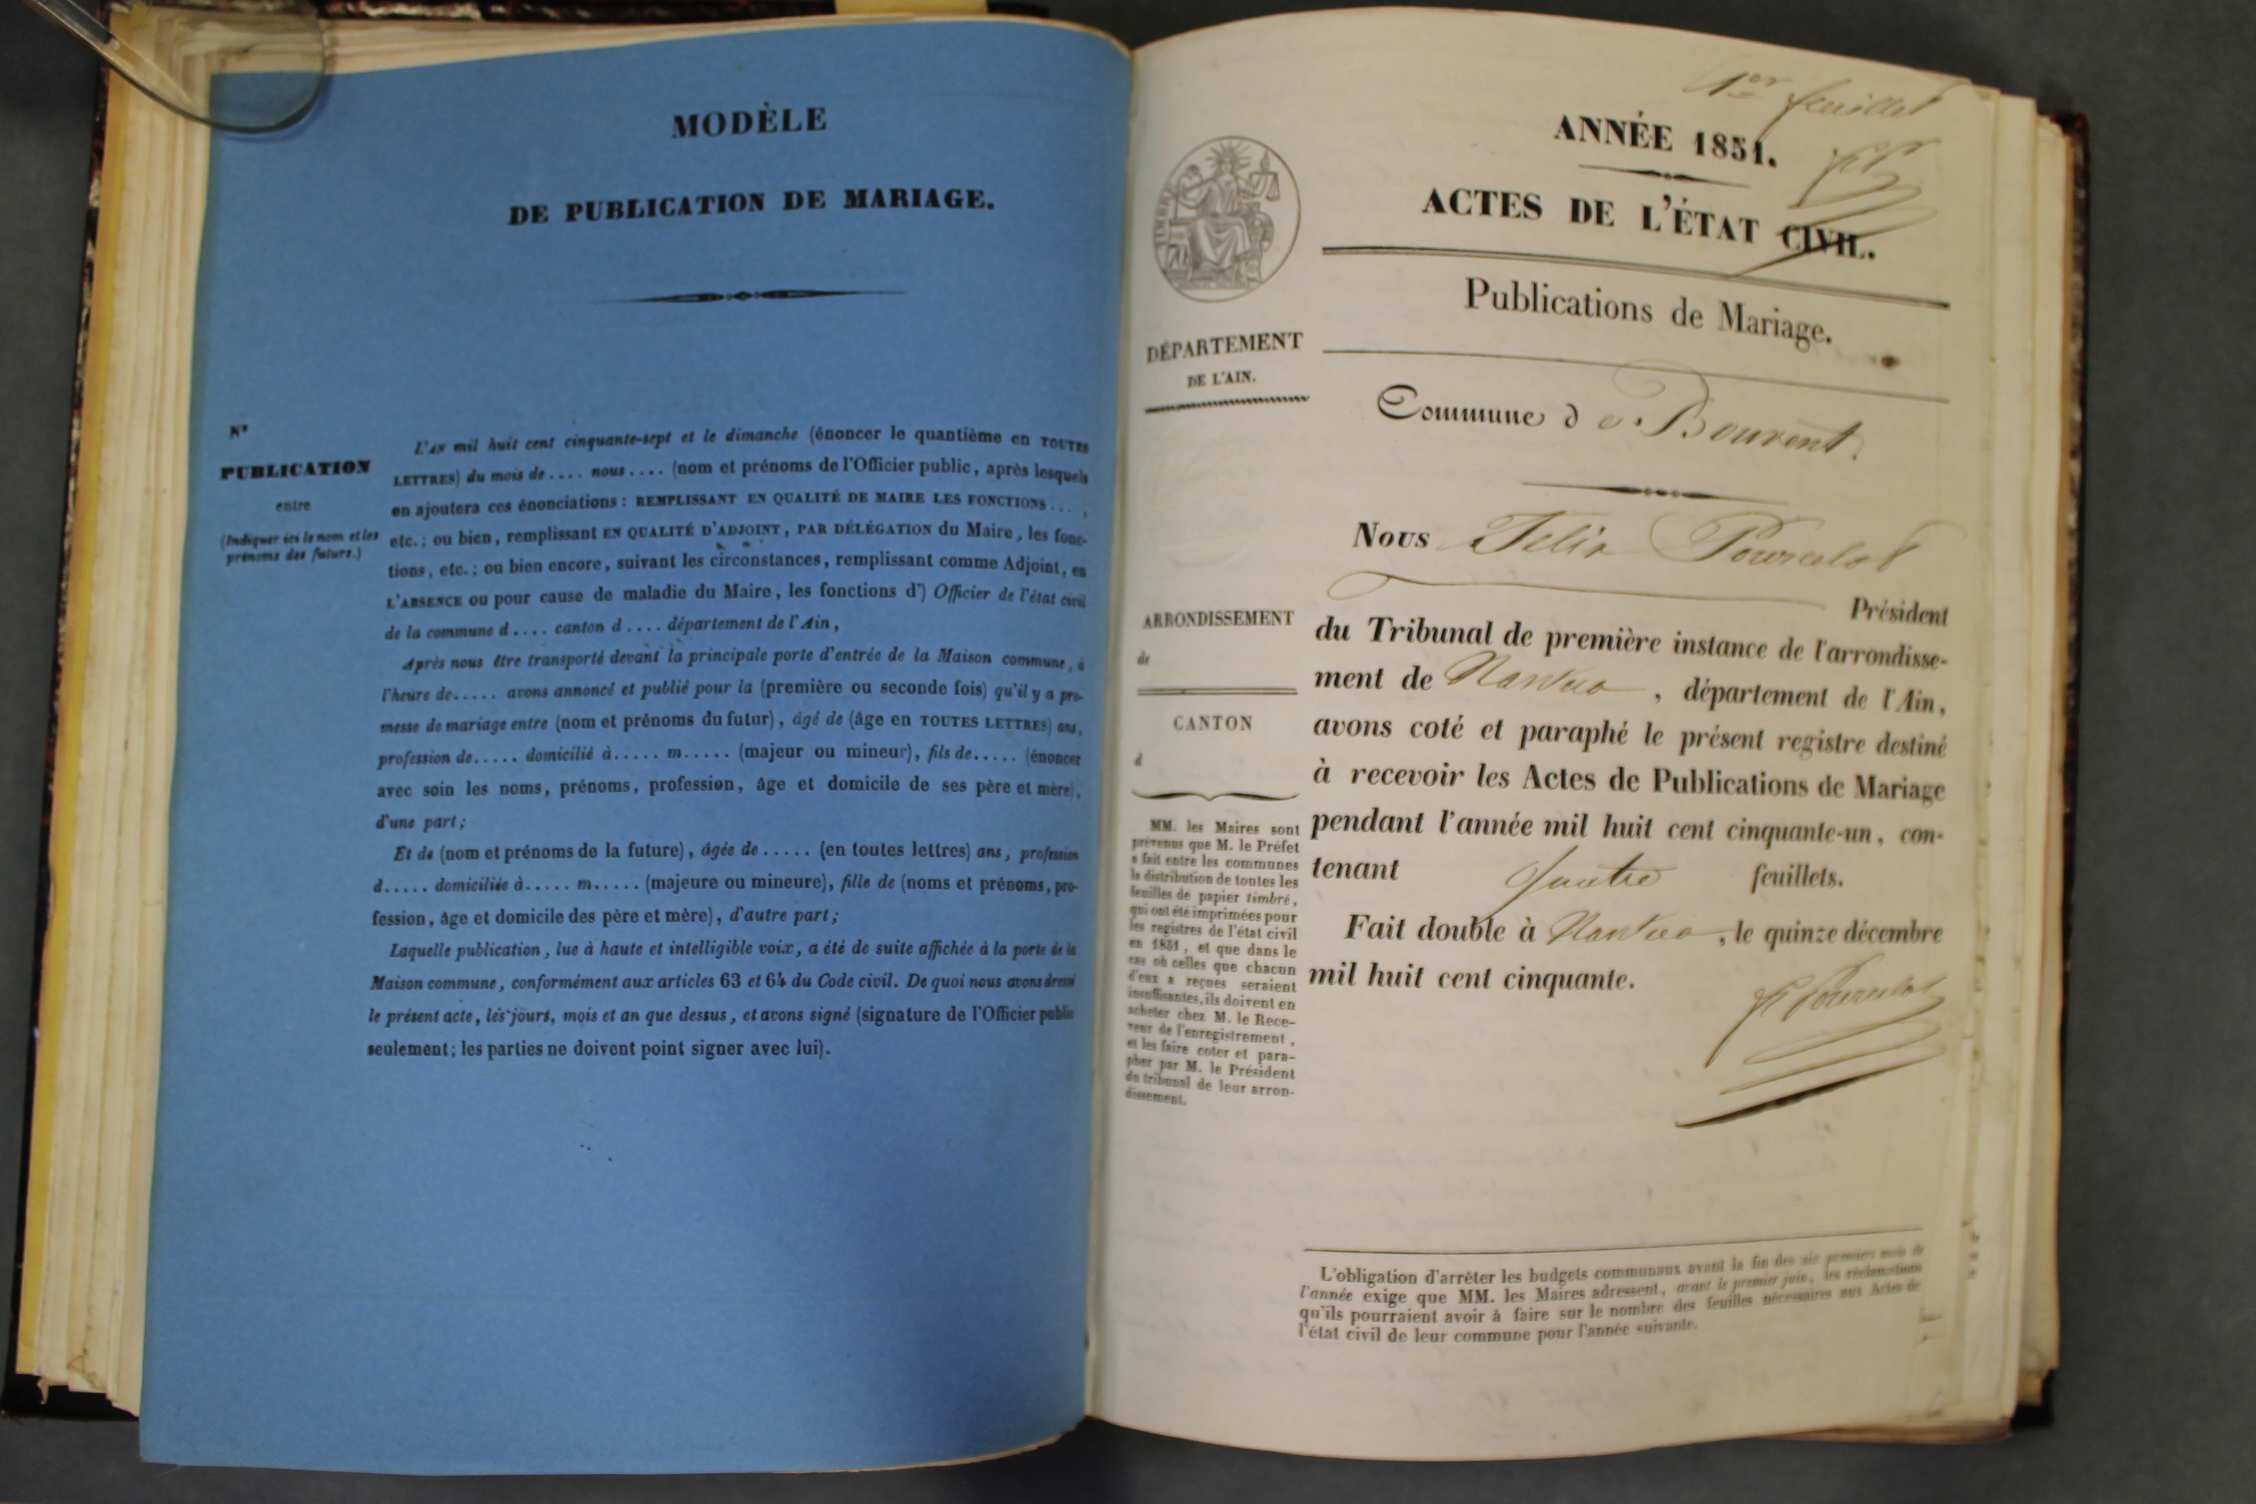 MODÈLE
DE PUBLICATION DE MARIAGE.
N°
PUBLICATION
entre
(Indiquer ici le nom et les
prénoms des futurs.)
L'AN mil huit cent cinquante-sept et le dimanche (énoncer le quantième en TOUTES
LETTRES) du mois de .... nous .... (nom et prénoms de l'Officier public, après lesquels
on ajoutera ces énonciations : REMPLISSANT EN QUALITÉ DE MAIRE LES FONCTIONS ... ,
etc.; ou bien, remplissant EN QUALITÉ D'ADJOINT, PAR DÉLÉGATION du Maire, les fonc-
tions, etc.; ou bien encore, suivant les circonstances, remplissant comme Adjoint, en
L'ABSENCE ou pour cause de maladie du Maire, les fonctions d') Officier de l'état civil
de la commune d .... canton d .... département de l'Ain,
Après nous être transporté devant la principale porte d'entrée de la Maison commune, à
l'heure de..... avons annoncé et publié pour la (première ou seconde fois) qu'il y a pro-
messe de mariage entre (nom et prénoms du futur), âgé de (âge en TOUTES LETTRES) ans,
profession de..... domicilié à..... m..... (majeur ou mineur), fils de..... (énoncer
avec soin les noms, prénoms, profession, âge et domicile de ses père et mère),
d'une part;
Et de (nom et prénoms de la future), âgée de ..... (en toutes lettres) ans, profession
d..... domiciliée à..... m..... (majeure ou mineure), fille de (noms et prénoms, pro-
fession, âge et domicile des père et mère), d'autre part;
Laquelle publication, lue à haute et intelligible voix, a été de suite affichée à la porte de la
Maison commune, conformément aux articles 63 et 64 du Code civil. De quoi nous avons dressé
le présent acte, les jours, mois et an que dessus, et avons signé (signature de l'Officier public
seulement; les parties ne doivent point signer avec lui).
1er feuillet
ANNÉE 1851.
ACTES DE L'ÉTAT CIVIL.
Publications de Mariage.
TIMBRE
DÉPARTEMENT
DE L'AIN.
Commune de Bouvent
Nous Felix Pourcelot
Président
du Tribunal de première instance de l'arrondisse-
ment de Nantua, département de l'Ain,
avons coté et paraphé le présent registre destiné
à recevoir les Actes de Publications de Mariage
pendant l'année mil huit cent cinquante-un, con-
tenant quatre feuillets.
Fait double à Nantua, le quinze décembre
mil huit cent cinquante.
F Pourcelot
ARRONDISSEMENT
de
CANTON
d
MM. les Maires sont
prévenus que M. le Préfet
a fait entre les communes
la distribution de toutes les
feuilles de papier timbré,
qui ont été imprimées pour
les registres de l'état civil
en 1851, et que dans le
cas où celles que chacun
d'eux a reçues seraient
insuffisantes, ils doivent en
acheter chez M. le Rece-
veur de l'enregistrement,
et les faire coter et para-
pher par M. le Président
du tribunal de leur arron-
dissement.
L'obligation d'arrêter les budgets communaux avant la fin des six premiers mois de
l'année exige que MM. les Maires adressent, avant le premier juin, les réclamations
qu'ils pourraient avoir à faire sur le nombre des feuilles nécessaires aux Actes de
l'état civil de leur commune pour l'année suivante.